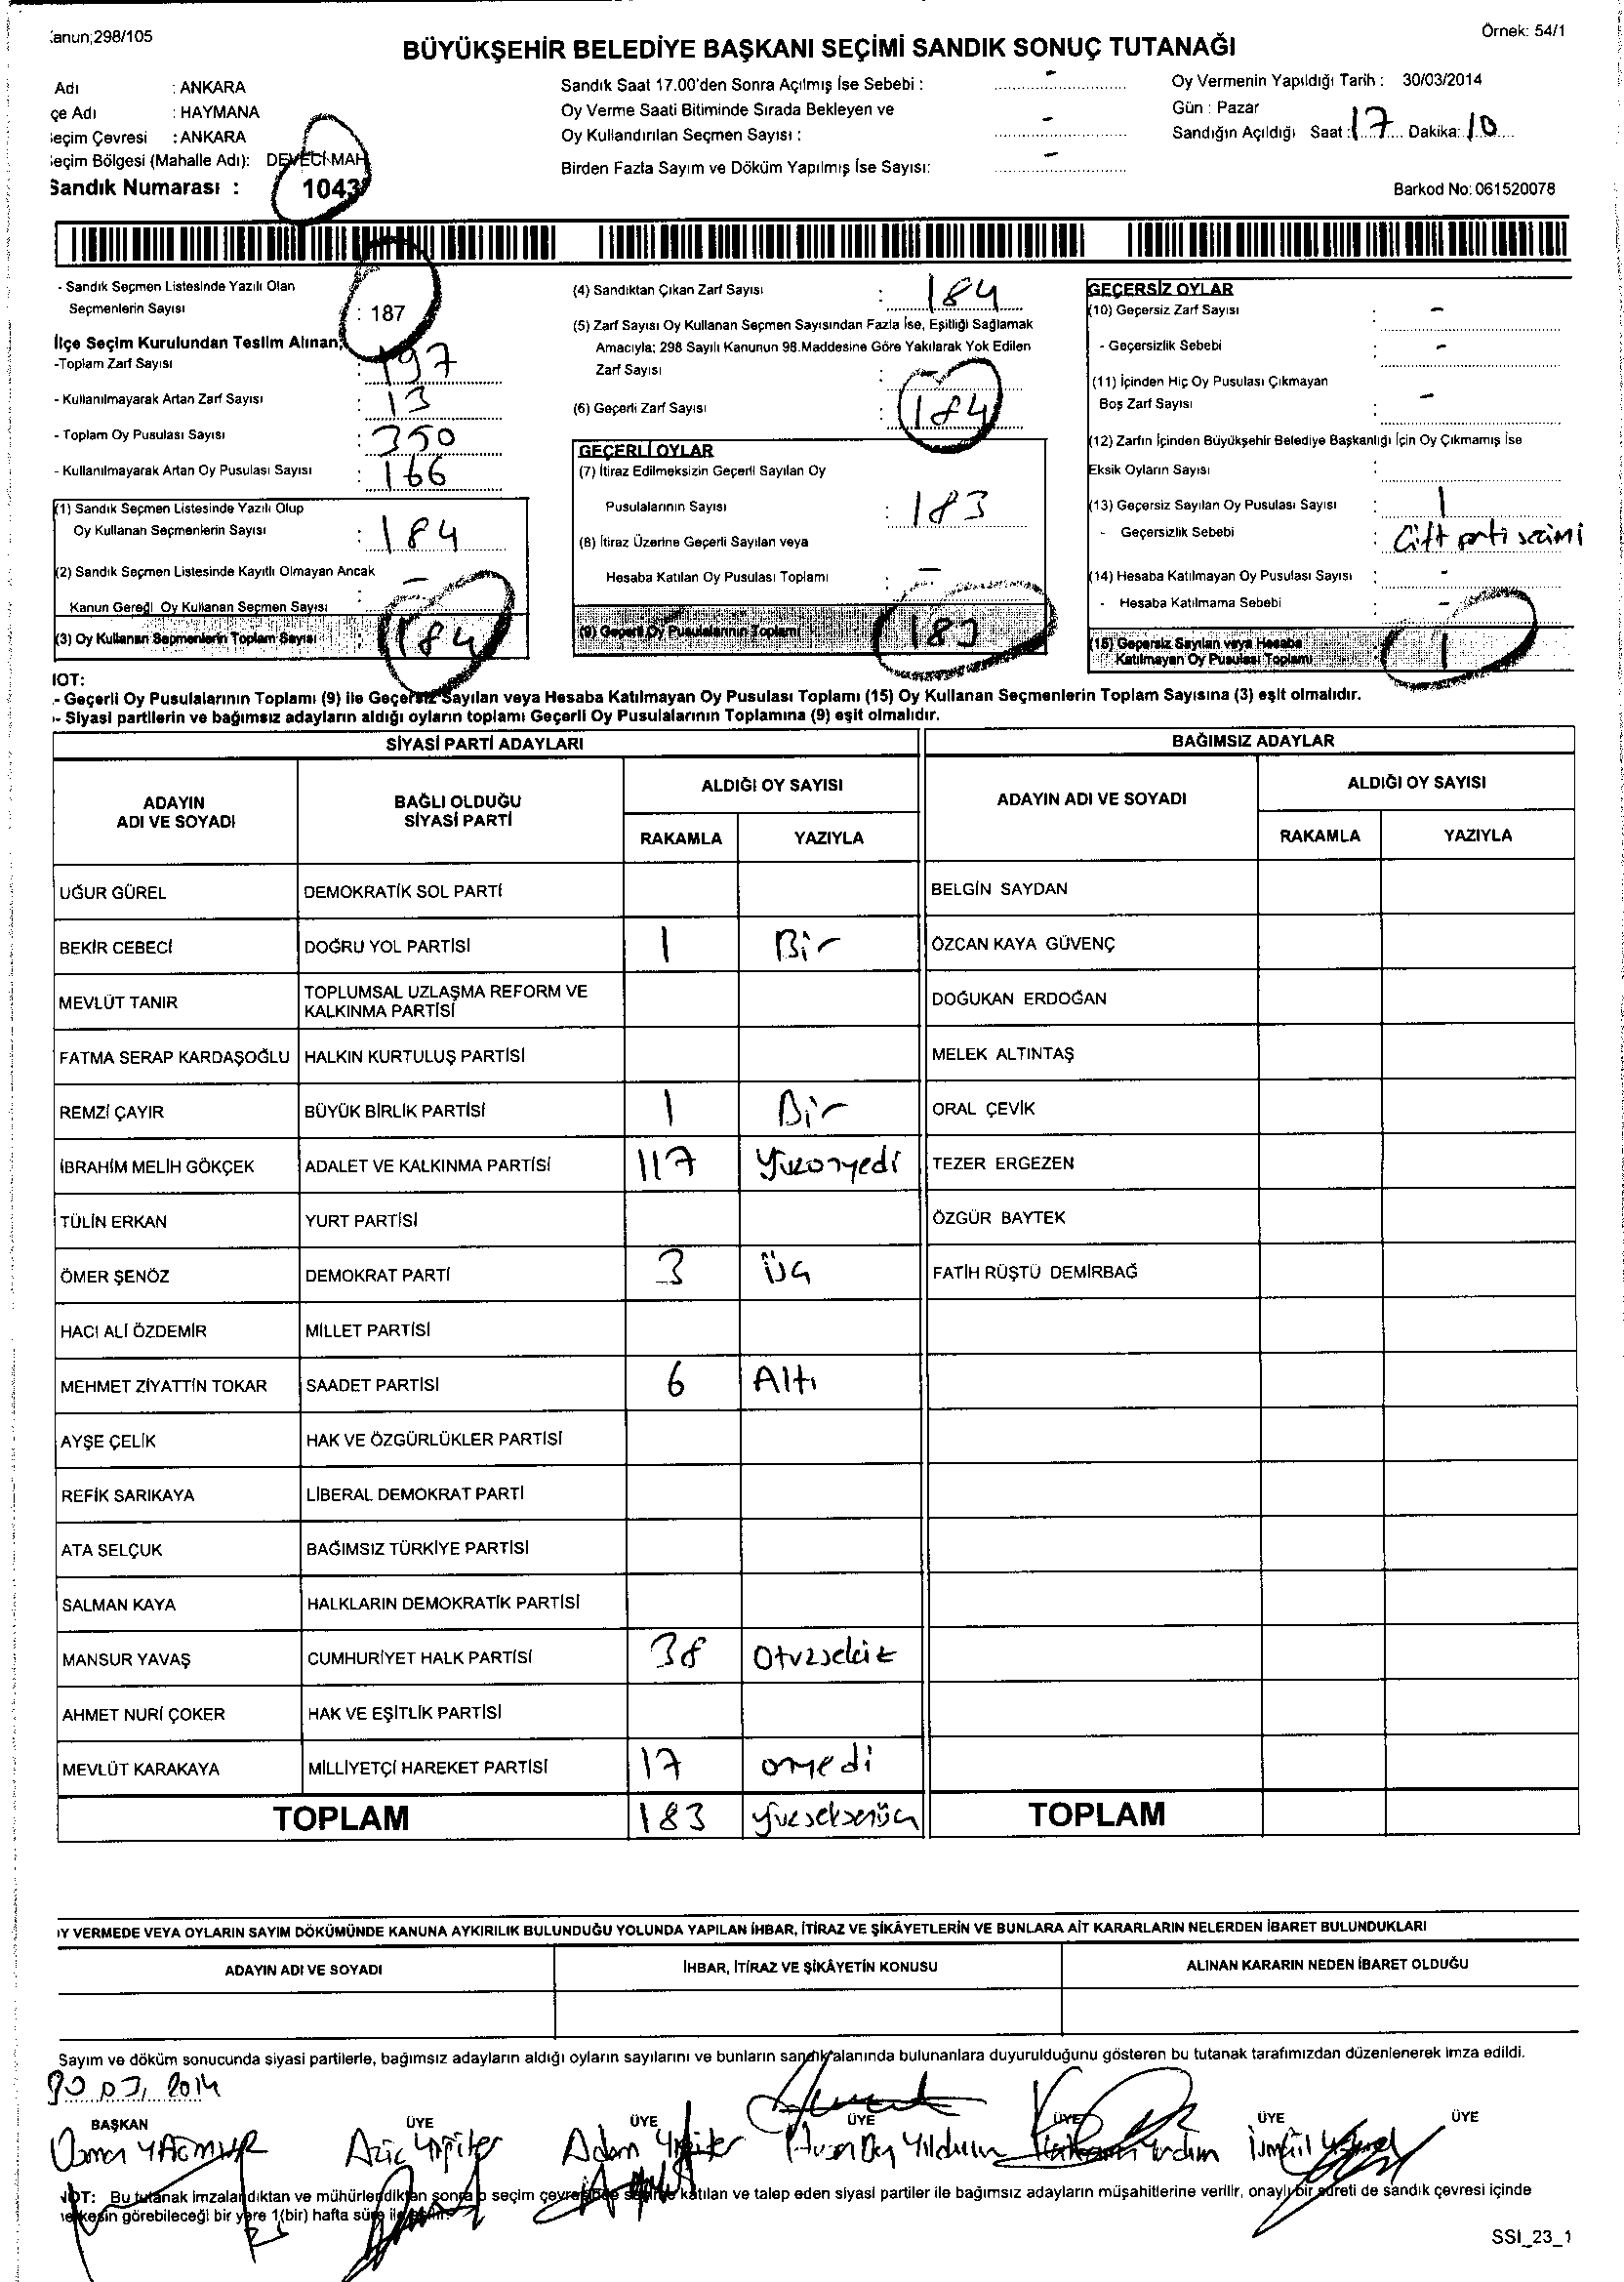 .anun;298/105
Örnek: 54/1
BÜYÜKŞEHİR BELEDİYE BAŞKANI SEÇİMİ SANDIK SONUÇ TUTANAĞI
Adı : ANKARA
çe Adı : HAYMANA
eçim Çevresi : ANKARA
eçim Bölgesi (Mahalle Adı): DEVECİ MAH
Sandık Numarası : 1043
Sandık Saat 17.00'den Sonra Açılmış İse Sebebi : -
Oy Verme Saati Bitiminde Sırada Bekleyen ve
Oy Kullandırılan Seçmen Sayısı : -
Birden Fazla Sayım ve Döküm Yapılmış İse Sayısı: -
Oy Vermenin Yapıldığı Tarih : 30/03/2014
Gün : Pazar
Sandığın Açıldığı Saat : 17 Dakika: 10
Barkod No: 061520078
- Sandık Seçmen Listesinde Yazılı Olan
Seçmenlerin Sayısı : 187
İlçe Seçim Kurulundan Teslim Alınan;
-Toplam Zarf Sayısı : 197
- Kullanılmayarak Artan Zarf Sayısı : 13
- Toplam Oy Pusulası Sayısı : 350
- Kullanılmayarak Artan Oy Pusulası Sayısı : 166
(1) Sandık Seçmen Listesinde Yazılı Olup
Oy Kullanan Seçmenlerin Sayısı : 184
(2) Sandık Seçmen Listesinde Kayıtlı Olmayan Ancak
Kanun Gereği Oy Kullanan Seçmen Sayısı : -
(3) Oy Kullanan Seçmenlerin Toplam Sayısı : 184
(4) Sandıktan Çıkan Zarf Sayısı : 184
(5) Zarf Sayısı Oy Kullanan Seçmen Sayısından Fazla İse, Eşitliği Sağlamak
Amacıyla; 298 Sayılı Kanunun 98.Maddesine Göre Yakılarak Yok Edilen
Zarf Sayısı :
(6) Geçerli Zarf Sayısı : 184
GEÇERLİ OYLAR
(7) İtiraz Edilmeksizin Geçerli Sayılan Oy
Pusulalarının Sayısı : 183
(8) İtiraz Üzerine Geçerli Sayılan veya
Hesaba Katılan Oy Pusulası Toplamı : -
(9) Geçerli Oy Pusulalarının Toplamı 183
GEÇERSİZ OYLAR
(10) Geçersiz Zarf Sayısı : -
- Geçersizlik Sebebi : -
(11) İçinden Hiç Oy Pusulası Çıkmayan
Boş Zarf Sayısı : -
(12) Zarfın İçinden Büyükşehir Belediye Başkanlığı İçin Oy Çıkmamış İse
Eksik Oyların Sayısı :
(13) Geçersiz Sayılan Oy Pusulası Sayısı : 1
- Geçersizlik Sebebi : Çift parti seçimi
(14) Hesaba Katılmayan Oy Pusulası Sayısı : -
- Hesaba Katılmama Sebebi : -
(15) Geçersiz Sayılan veya Hesaba
Katılmayan Oy Pusulası Toplamı : 1
IOT:
.- Geçerli Oy Pusulalarının Toplamı (9) ile Geçersiz Sayılan veya Hesaba Katılmayan Oy Pusulası Toplamı (15) Oy Kullanan Seçmenlerin Toplam Sayısına (3) eşit olmalıdır.
- Siyasi partilerin ve bağımsız adayların aldığı oyların toplamı Geçerli Oy Pusulalarının Toplamına (9) eşit olmalıdır.
SİYASİ PARTİ ADAYLARI BAĞIMSIZ ADAYLAR
ADAYIN ADI VE SOYADI BAĞLI OLDUĞU SİYASİ PARTİ ALDIĞI OY SAYISI ADAYIN ADI VE SOYADI ALDIĞI OY SAYISI
RAKAMLA YAZIYLA RAKAMLA YAZIYLA
UĞUR GÜREL DEMOKRATİK SOL PARTİ BELGİN SAYDAN
BEKİR CEBECİ DOĞRU YOL PARTİSİ 1 Bir ÖZCAN KAYA GÜVENÇ
MEVLÜT TANIR TOPLUMSAL UZLAŞMA REFORM VE KALKINMA PARTİSİ DOĞUKAN ERDOĞAN
FATMA SERAP KARDAŞOĞLU HALKIN KURTULUŞ PARTİSİ MELEK ALTINTAŞ
REMZİ ÇAYIR BÜYÜK BİRLİK PARTİSİ 1 Bir ORAL ÇEVİK
İBRAHİM MELİH GÖKÇEK ADALET VE KALKINMA PARTİSİ 117 Yüzonyedi TEZER ERGEZEN
TÜLİN ERKAN YURT PARTİSİ ÖZGÜR BAYTEK
ÖMER ŞENÖZ DEMOKRAT PARTİ 3 Üç FATİH RÜŞTÜ DEMİRBAĞ
HACI ALİ ÖZDEMİR MİLLET PARTİSİ
MEHMET ZİYATTİN TOKAR SAADET PARTİSİ 6 Altı
AYŞE ÇELİK HAK VE ÖZGÜRLÜKLER PARTİSİ
REFİK SARIKAYA LİBERAL DEMOKRAT PARTİ
ATA SELÇUK BAĞIMSIZ TÜRKİYE PARTİSİ
SALMAN KAYA HALKLARIN DEMOKRATİK PARTİSİ
MANSUR YAVAŞ CUMHURİYET HALK PARTİSİ 38 Otuzsekiz
AHMET NURİ ÇOKER HAK VE EŞİTLİK PARTİSİ
MEVLÜT KARAKAYA MİLLİYETÇİ HAREKET PARTİSİ 17 onyedi
TOPLAM 183 yüzseksenüç TOPLAM
IY VERMEDE VEYA OYLARIN SAYIM DÖKÜMÜNDE KANUNA AYKIRILIK BULUNDUĞU YOLUNDA YAPILAN İHBAR, İTİRAZ VE ŞİKÂYETLERİN VE BUNLARA AİT KARARLARIN NELERDEN İBARET BULUNDUKLARI
ADAYIN ADI VE SOYADI İHBAR, İTİRAZ VE ŞİKÂYETİN KONUSU ALINAN KARARIN NEDEN İBARET OLDUĞU
Sayım ve döküm sonucunda siyasi partilerle, bağımsız adayların aldığı oyların sayılarını ve bunların sandık alanında bulunanlara duyurulduğunu gösteren bu tutanak tarafımızdan düzenlenerek imza edildi.
30.03.2014
BAŞKAN ÜYE ÜYE ÜYE ÜYE ÜYE ÜYE
Osman YAĞMUR Aziz Yiğiter Adem Yiğiter Yıldırım Yardım İsmail
NOT: Bu tutanak imzalandıktan ve mühürlendikten sonra o seçim çevresinde seçime katılan ve talep eden siyasi partiler ile bağımsız adayların müşahitlerine verilir, onaylı bir sureti de sandık çevresi içinde
herkesin görebileceği bir yere 1(bir) hafta süre ile asılır.
SSI_23_1